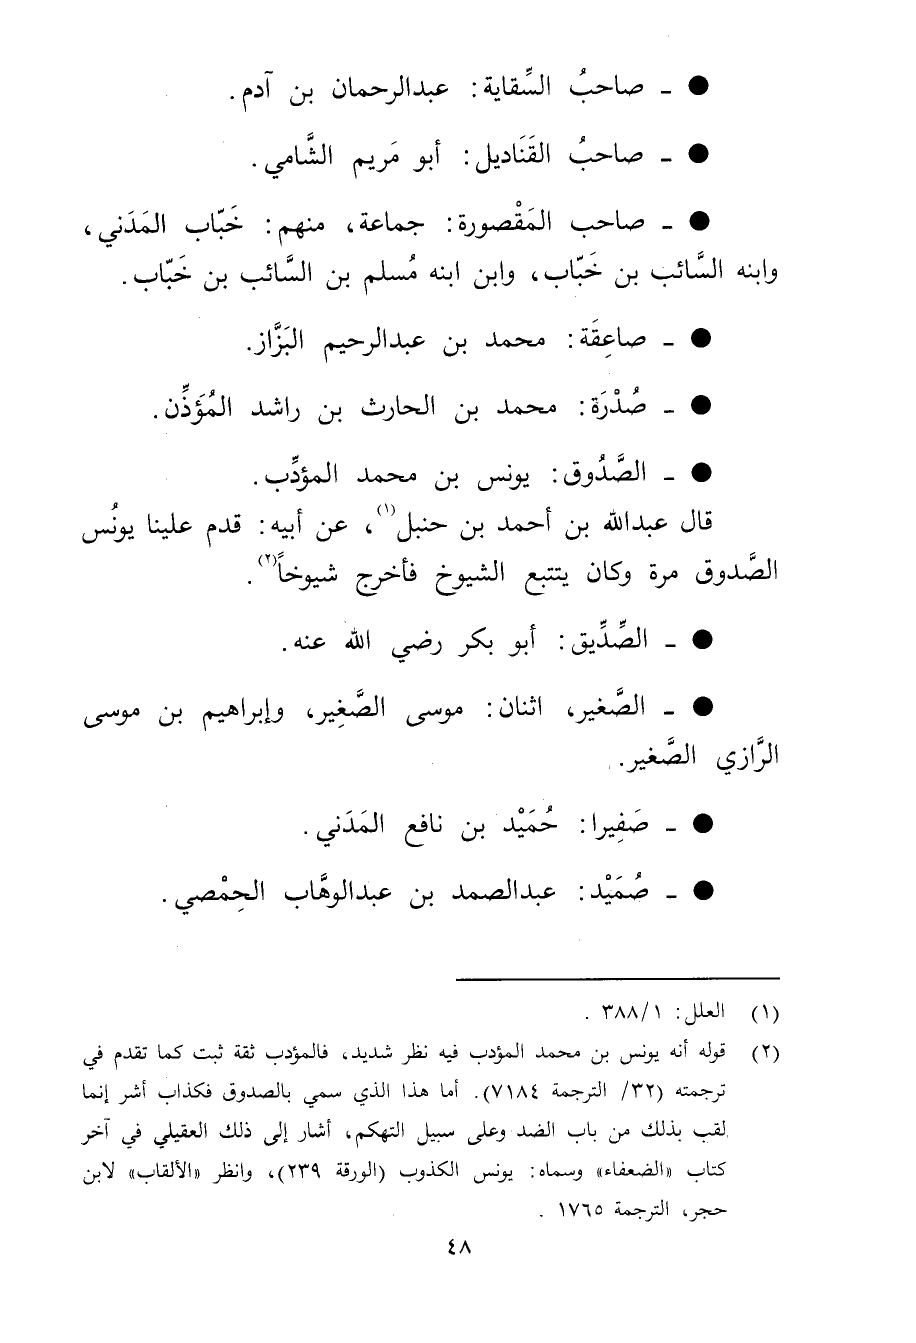 ● ـ صاحبُ السِّقاية: عبدالرحمان بن آدم.
● ـ صاحبُ القَنَاديل: أبو مَريم الشَّامي.
● ـ صاحب المَقْصورة: جماعة، منهم: خَبّاب المَدَني،
وابنه السَّائب بن خَبّاب، وابن ابنه مُسلم بن السَّائب بن خَبّاب.
● ـ صاعِقَة: محمد بن عبدالرحيم البَزَّاز.
● ـ صُدْرَة: محمد بن الحارث بن راشد المُؤَذِّن.
● ـ الصَّدُوق: يونس بن محمد المؤدِّب.
قال عبدالله بن أحمد بن حنبل(١)، عن أبيه: قدم علينا يونُس
الصَّدوق مرة وكان يتتبع الشيوخ فأخرج شيوخاً(٢).
● ـ الصِّدِّيق: أبو بكر رضي الله عنه.
● ـ الصَّغير، اثنان: موسى الصَّغِير، وإبراهيم بن موسى
الرَّازي الصَّغير.
● ـ صَفِيرا: حُمَيْد بن نافع المَدَني.
● ـ صُمَيْد: عبدالصمد بن عبدالوهَّاب الحِمْصي.
(١) العلل: ٣٨٨/١.
(٢) قوله أنه يونس بن محمد المؤدب فيه نظر شديد، فالمؤدب ثقة ثبت كما تقدم في
ترجمته (٣٢/ الترجمة ٧١٨٤). أما هذا الذي سمي بالصدوق فكذاب أشر إنما
لقب بذلك من باب الضد وعلى سبيل التهكم، أشار إلى ذلك العقيلي في آخر
كتاب «الضعفاء» وسماه: يونس الكذوب (الورقة ٢٣٩)، وانظر «الألقاب» لابن
حجر، الترجمة ١٧٦٥.
٤٨